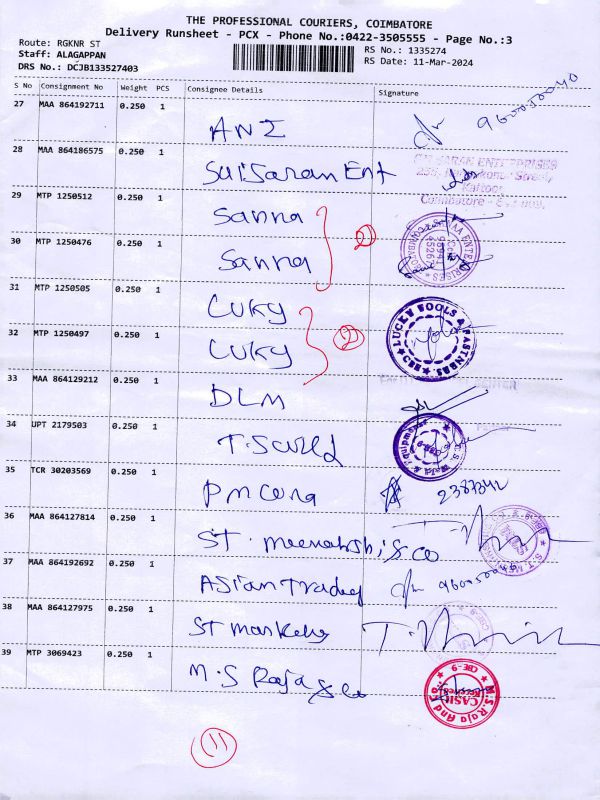 THE PROFESSIONAL COURIERS, COIMBATORE
Delivery Runsheet - PCX - Phone No.:0422-3505555 - Page No.:3
Route: RGKNR ST
RS No.: 1335274
Staff: ALAGAPPAN
RS Date: 11-Mar-2024
DRS No.: DCJB133527403
S No Consignment No Weight PCS Consignee Details Signature
27 MAA 864192711 0.250 1
28 MAA 864186575 0.250 1 Sui Saran Ent
SARAN ENTERPRISES
Kattoor
Coimbatore
29 MTP 1250512 0.250 1 Sanna
30 MTP 1250476 0.250 1 Sanna
2
31 MTP 1250505 0.250 1 Cuky
LUCKY TOOLS & FASTNERS
CBE
32 MTP 1250497 0.250 1 Cuky
2
33 MAA 864129212 0.250 1 DLM
34 UPT 2179503 0.250 1
35 TCR 30203569 0.250 1
36 MAA 864127814 0.250 1 ST. meenakshi & co
37 MAA 864192692 0.250 1 Asian
38 MAA 864127975 0.250 1
39 MTP 3069423 0.250 1 M.S Raja & co
M.S. Raja And
CASH
CBE-9
11